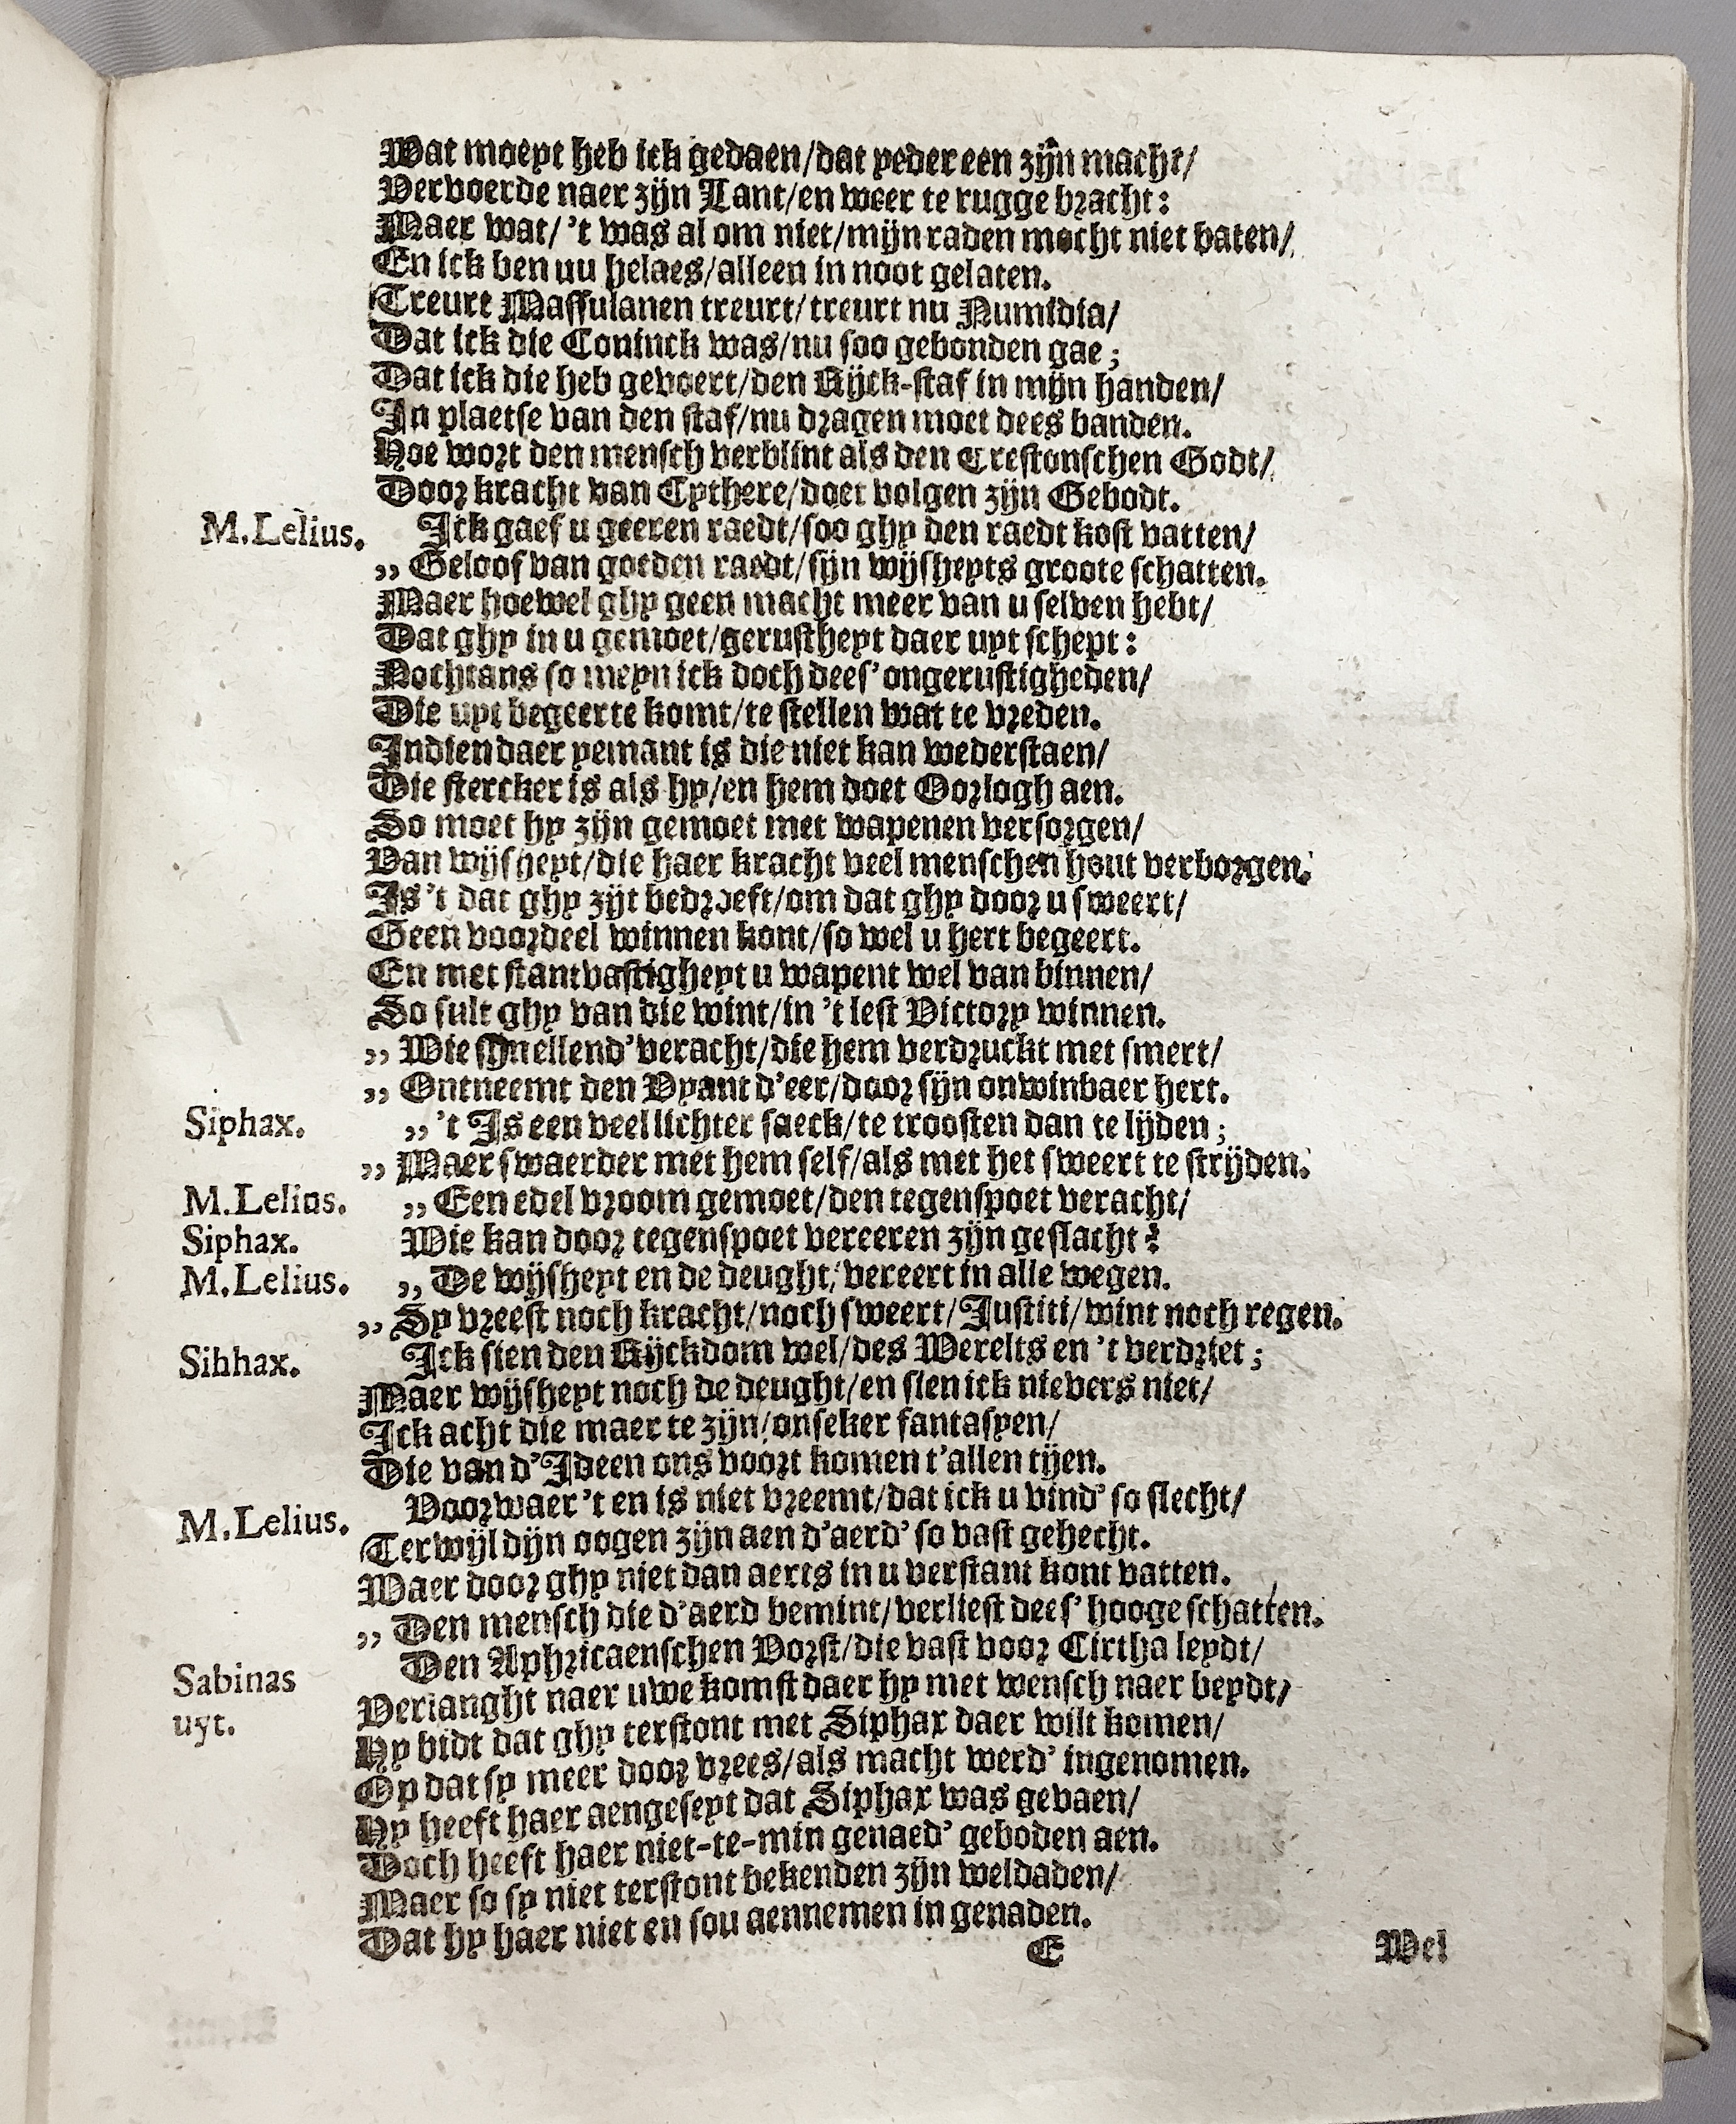 Wat moeyt heb ick gedaen/dat yeder een zijn macht/
Vervoerde naer zijn Lant/en weer te rugge bracht:
Maer wat/'t was al om niet/mijn raden mocht niet baten/
En ick ben nu helaes/alleen in noot gelaten.
Treurt Massulanen treurt/treurt nu Numidia/
Dat ick die Coninck was/nu soo gebonden gae;
Dat ick die heb gevoert/den Rijck-staf in mijn handen/
In plaetse van den staf/nu dragen moet dees banden.
Hoe wort den mensch verblint als den Crestonschen Godt/
Door kracht van Cythere/doet volgen zijn Gebodt.
M. Lelius. Ick gaef u geeren raedt/soo ghy den raedt kost vatten/
,, Geloof van goeden raedt/sijn wijsheyts groote schatten.
Maer hoewel ghy geen macht meer van u selven hebt/
Dat ghy in u gemoet/gerustheyt daer uyt schept:
Nochtans so meyn ick doch dees' ongerustigheden/
Die uyt begeerte komt/te stellen wat te vreden.
Indien daer yemant is die niet kan wederstaen/
Die stercker is als hy/en hem doet Oorlogh aen.
So moet hy zijn gemoet met wapenen versorgen/
Van wijsheyt/die haer kracht veel menschen hout verborgen.
Is 't dat ghy zijt bedroeft/om dat ghy door u sweert/
Geen voordeel winnen kont/so wel u hert begeert.
En met stantvastigheyt u wapent wel van binnen/
So sult ghy van die wint/in 't lest Victory winnen.
,, Wie snellend' veracht/die hem verdruckt met smert/
,, Ontneemt den Vyant d'eer/door sijn onwinbaer hert.
Siphax. ,, 't Is een veel lichter saeck/te troosten dan te lijden;
,, Maer swaerder met hem self/als met het sweert te strijden.
M. Lelius. ,, Een edel vroom gemoet/den tegenspoet veracht/
Siphax. Wie kan door tegenspoet vereeren zijn geslacht?
M. Lelius. ,, De wijsheyt en de deught/vereert in alle wegen.
,, Sy vreest noch kracht/noch sweert/Justiti/wint noch regen.
Sihhax. Ick sien den Rijckdom wel/des Werelts en 't verdriet;
Maer wijsheyt noch de deught/en sien ick nievers niet/
Ick acht die maer te zijn/onseker fantasyen/
Die van d'Ideen ons voort komen t'allen tijen.
M. Lelius. Voorwaer 't en is niet vreemt/dat ick u vind' so slecht/
Terwijl dijn oogen zijn aen d'aerd' so vast gehecht.
Waer door ghy niet dan aerts in u verstant kont vatten.
,, Den mensch die d'aerd bemint/verliest dees' hooge schatten.
Sabinas uyt. Den Aphricaenschen Vorst/die vast voor Cirtha leydt/
Verlanght naer uwe komst daer hy met wensch naer beydt/
Hy bidt dat ghy terstont met Siphax daer wilt komen/
Op dat sy meer door vrees/als macht werd' ingenomen.
Hy heeft haer aengeseyt dat Siphax was gevaen/
Doch heeft haer niet-te-min genaed' geboden aen.
Maer so sy niet terstont bekenden zijn weldaden/
Dat hy haer niet en sou aennemen in genaden.
E Wel